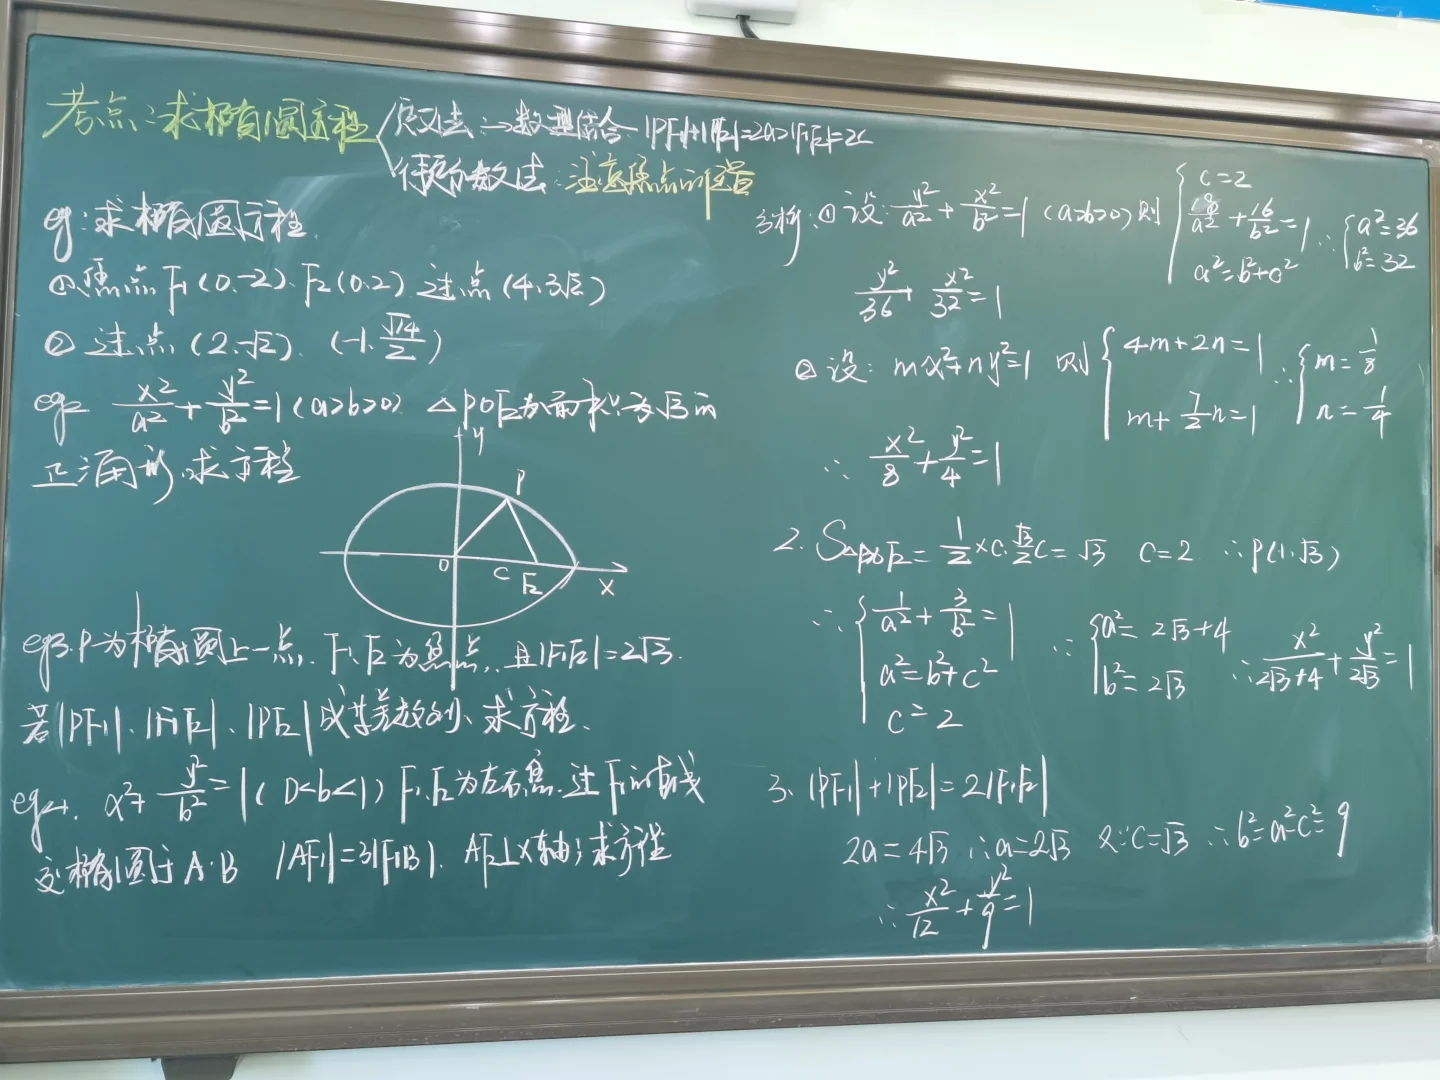 考点:求椭圆方程
定义法⇒数型结合 |PF₁|+|PF₂|=2a>|F₁F₂|=2c
待定系数法:注意焦点的位置
eg:求椭圆方程.
①焦点F₁(0.-2).F₂(0.2).过点(4.3√2)
②过点(2.-√2). (-1.√14/2)
eg2 x²/a²+y²/b²=1(a>b>0). △POF₂为面积为√3的
正三角形.求方程
y
P
O C F₂ X
eg3.P为椭圆上一点.F₁.F₂为焦点.且|F₁F₂|=2√3.
若|PF₁|.|F₁F₂|.|PF₂|成等差数列、求方程.
eg4. x²+y²/b²=1(0<b<1) F₁.F₂为左右焦.过F₁的直线
交椭圆于A.B |AF₁|=3|F₁B|. AF₂⊥X轴;求方程
分析:①设:y²/a²+x²/b²=1(a>b>0)则{c=2 18/a²+16/b²=1 a²=b²+c² ∴{a²=36 b²=32
y²/36+x²/32=1
②设:mx²+ny²=1 则{4m+2n=1 m+7/2n=1 ∴{m=1/8 n=1/4
∴ x²/8+y²/4=1
2. S△POF₂=1/2×c.√3/2c=√3 C=2 ∴P(1.√3)
∴{1/a²+3/b²=1 a²=b²+c² c=2 ∴{a²=2√3+4 b²=2√3 ∴x²/2√3+4+y²/2√3=1
3、|PF₁|+|PF₂|=2|F₁F₂|
2a=4√3 ∴a=2√3 又∵C=√3 ∴b²=a²-c²=9
∴x²/12+y²/9=1